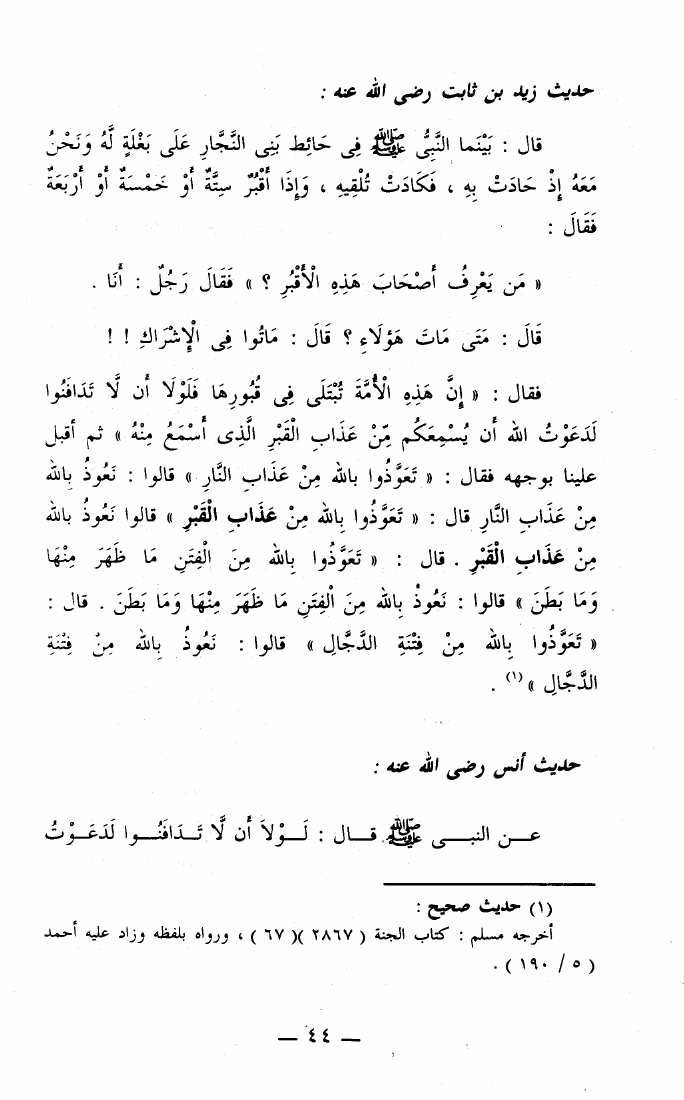 حديث زيد بن ثابت رضى الله عنه :
قال : بَيْنَما النَّبِىُّ ﷺ فِى حَائِط بَنِى النَّجَّارِ عَلَى بَغْلَةٍ لَّهُ وَنَحْنُ
مَعَهُ إِذْ حَادَتْ بِهِ ، فَكَادَتْ تُلْقِيهِ ، وَإِذَا أَقْبُرٌ سِتَّةٌ أَوْ خَمْسَةٌ أَوْ أَرْبَعَةٌ
فَقَالَ :
« مَن يَعْرِفُ أَصْحَابَ هَذِهِ الْأَقْبُرِ ؟ » فَقَالَ رَجُلٌ : أَنَا .
قَالَ : مَتَى مَاتَ هَؤلَاءِ ؟ قَالَ : مَاتُوا فِى الْإِشْرَاكِ ! !
فقال : « إِنَّ هَذِهِ الْأُمَّةَ تُبْتَلَى فِى قُبُورِهَا فَلَوْلَا أَن لَّا تَدَافَنُوا
لَدَعَوْتُ الله أَن يُسْمِعَكُم مِّنْ عَذَابِ القَبْرِ الَّذِى أَسْمَعُ مِنْهُ » ثم أقبل
علينا بوجهه فقال : « تَعَوَّذُوا بالله مِنْ عَذَابِ النَّارِ » قالوا : نَعُوذُ بِالله
مِنْ عَذَابِ النَّارِ قال : « تَعَوَّذُوا بِالله مِنْ عَذَابِ الْقَبْرِ » قالوا نَعُوذُ بالله
مِنْ عَذَابِ الْقَبْرِ . قال : « تَعَوَّذُوا بِالله مِنَ الْفِتَنِ مَا ظَهَرَ مِنْهَا
وَمَا بَطَنَ » قالوا : نَعُوذُ بِالله مِنَ الْفِتَنِ مَا ظَهَرَ مِنْهَا وَمَا بَطَنَ . قال :
« تَعَوَّذُوا بِالله مِنْ فِتْنَةِ الدَّجَّالِ » قالوا : نَعُوذُ بِالله مِنْ فِتْنَةِ
الدَّجَّالِ » (١) .
حديث أنس رضى الله عنه :
عن النبى ﷺ قال : لَوْلاَ أَن لَّا تَدَافَنُوا لَدَعَوْتُ
(١) حديث صحيح :
أخرجه مسلم : كتاب الجنة ( ٢٨٦٧ )( ٦٧ ) ، ورواه بلفظه وزاد عليه أحمد
( ٥ / ١٩٠ ) .
— ٤٤ —